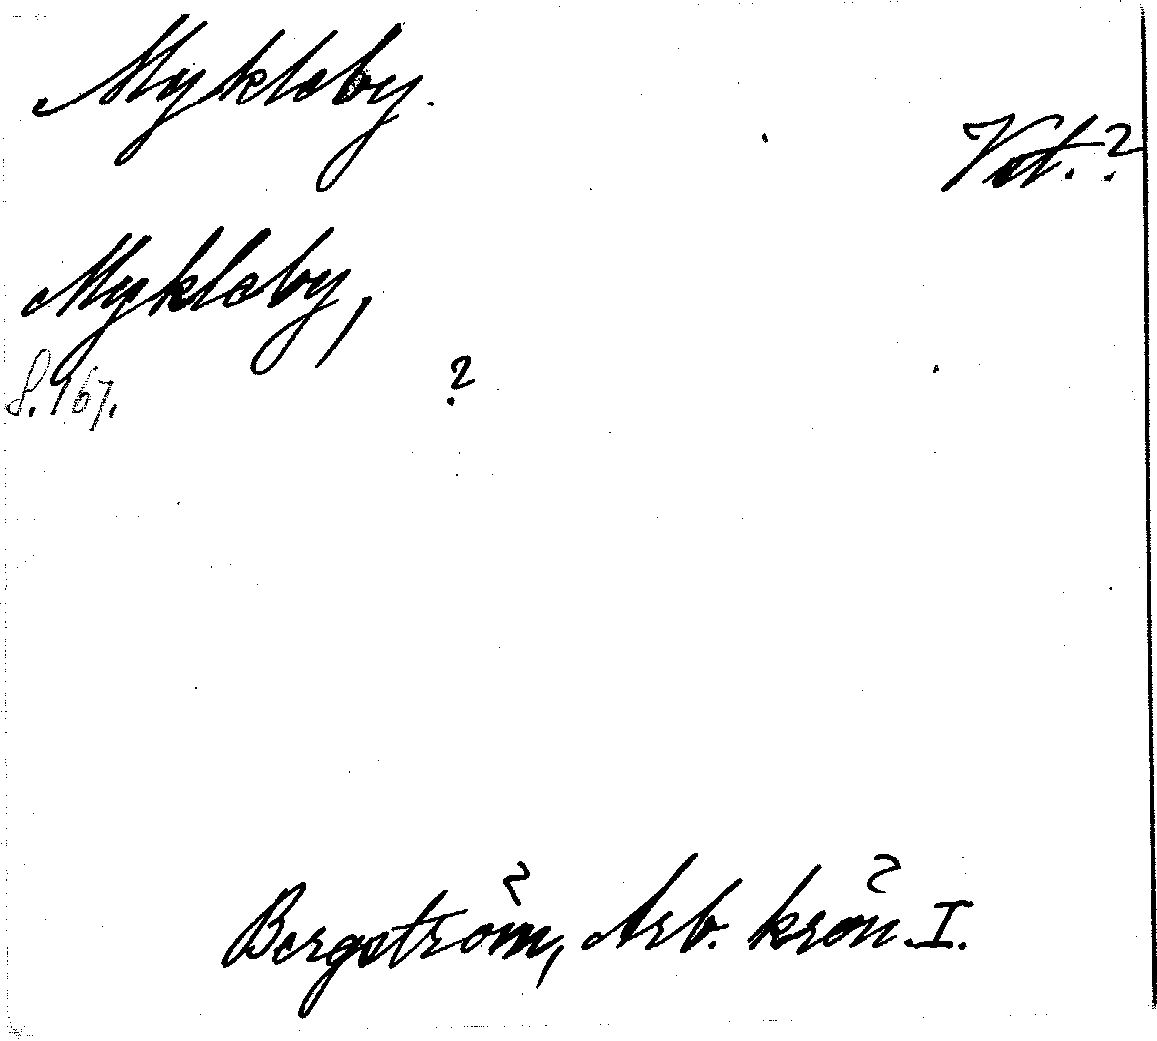 Mykleby.
Vst.?
Mykleby,
S. 167.
?
Bergström, Arb. krön. I.